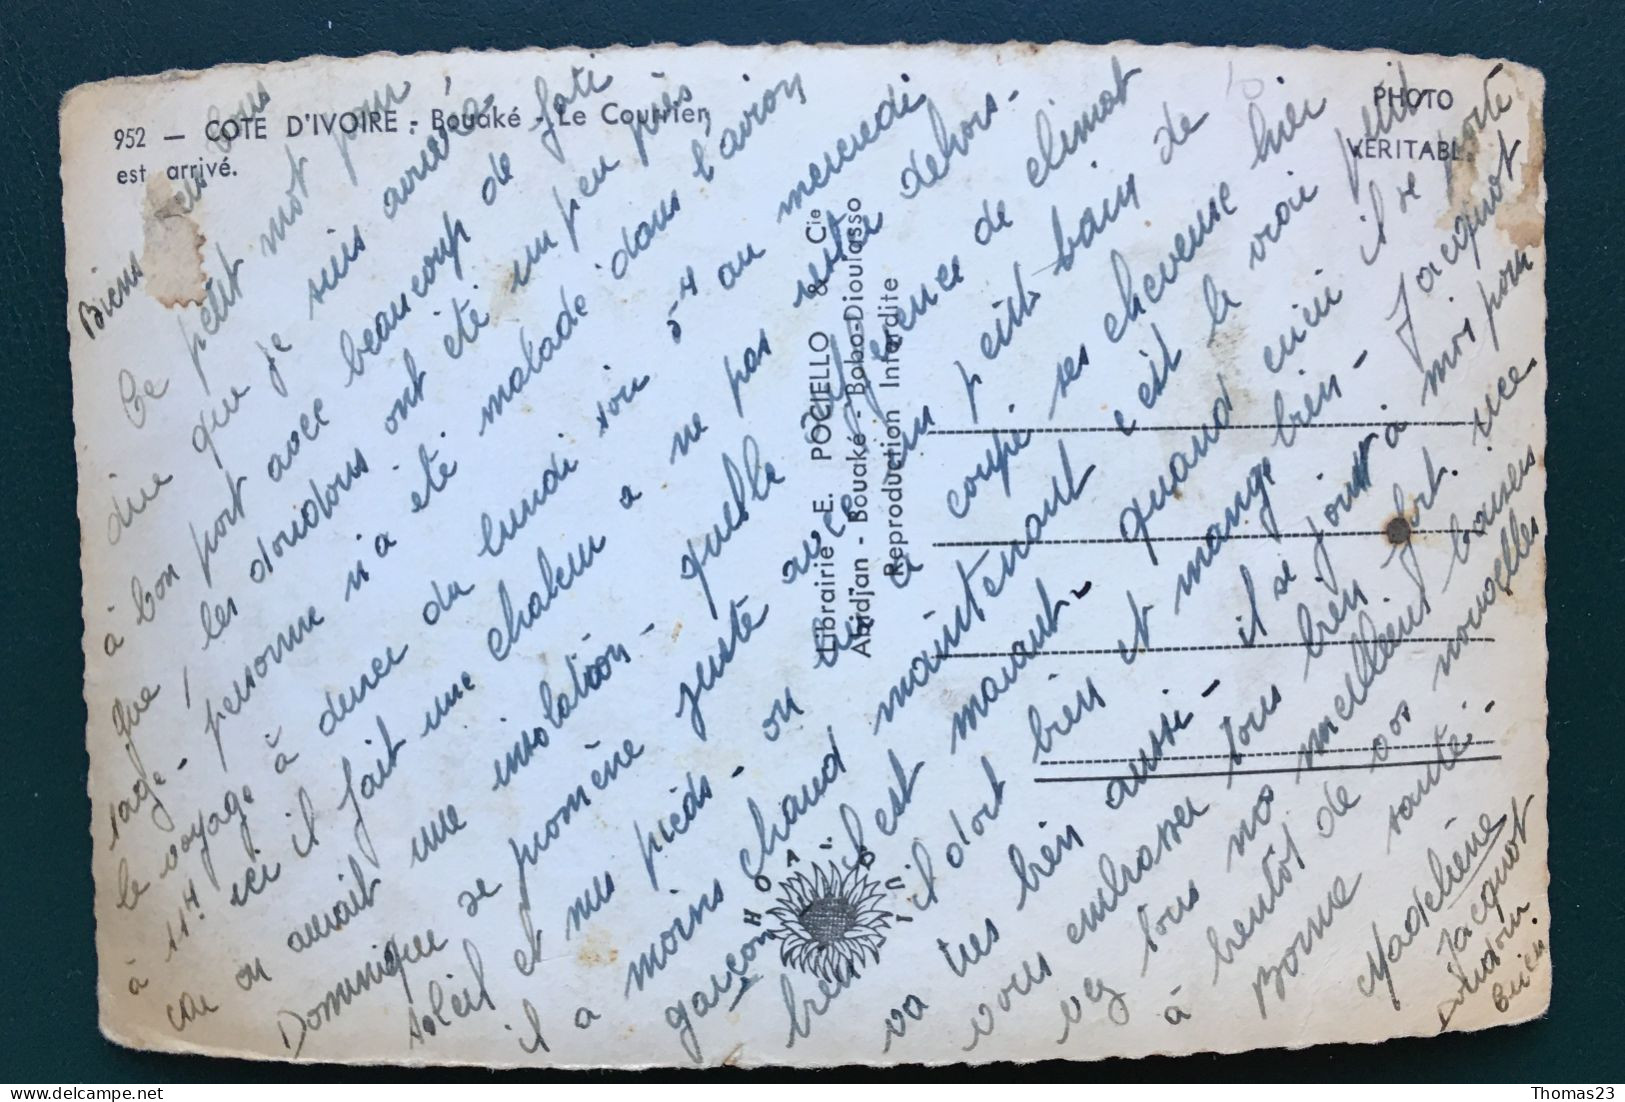 952 — COTE D'IVOIRE - Bouaké - Le Courrier
est arrivé.
PHOTO
VERITABL
Librairie E. POCIELLO & Cie
Abidjan - Bouaké - Bobo-Dioulasso
Reproduction Interdite
HODALIBOUI
Biens vous
Ce petit mot pour
dire que je suis arrivée
à bon port avec beaucoup de fati
que, les doudous ont été un peu près
sage - personne n'a été malade dans l'avion
le voyage à durer du lundi soir 5H au mercredi
à 11H. ici il fait une chaleur a ne pas rester dehors -
car on aurait une insolation - quelle différence de climat
Dominique se promène juste avec un petit bain de
soleil et nus pieds - on lui a coupé ses cheveuse hier
il a moins chaud maintenant c'est le vrai petit
garçon il est marant - quand Eric il se porte
bien il dort bien et mange bien - Jacquot
va très bien aussi - il se joint à moi pour
vous embrasser tous bien fort. vive
tous nos meilleurs baisers
à bentôt de vos nouvelles
Bonne santé -
Madeleine
Jacquot
Doudou
Eric
Thomas23